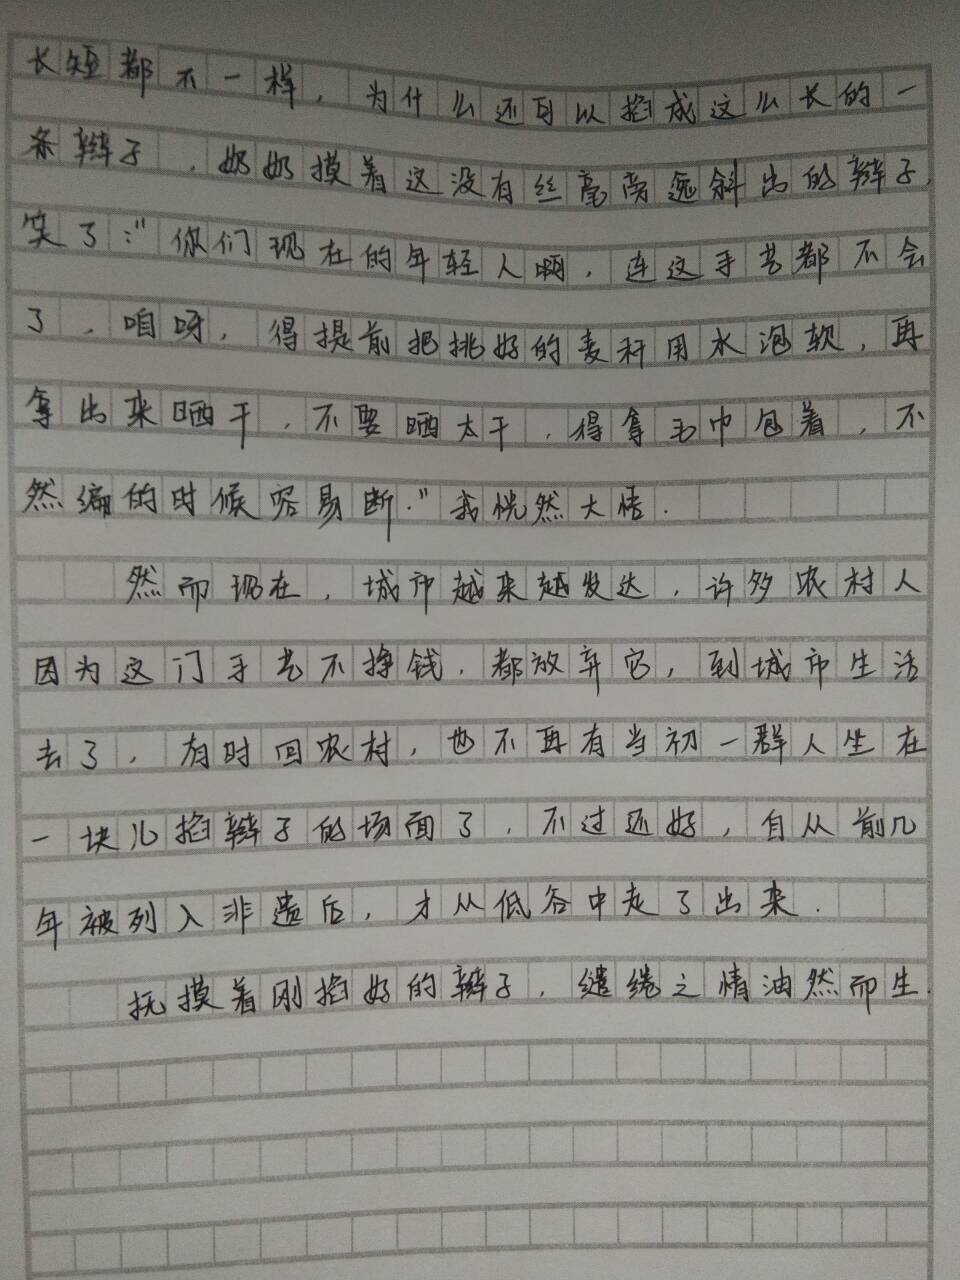 长短都不一样，为什么还可以掐成这么长的一
条辫子，奶奶摸着这没有丝毫旁逸斜出的辫子，
笑了："你们现在的年轻人啊，连这手艺都不会
了，咱呀，得提前把挑好的麦秆用水泡软，再
拿出来晒干，不要晒太干，得拿毛巾包着，不
然编的时候容易断."我恍然大悟.
然而现在，城市越来越发达，许多农村人
因为这门手艺不挣钱，都放弃它，到城市生活
去了，有时回农村，也不再有当初一群人坐在
一块儿掐辫子的场面了，不过还好，自从前几
年被列入非遗后，才从低谷中走了出来.
抚摸着刚掐好的辫子，缱绻之情油然而生.